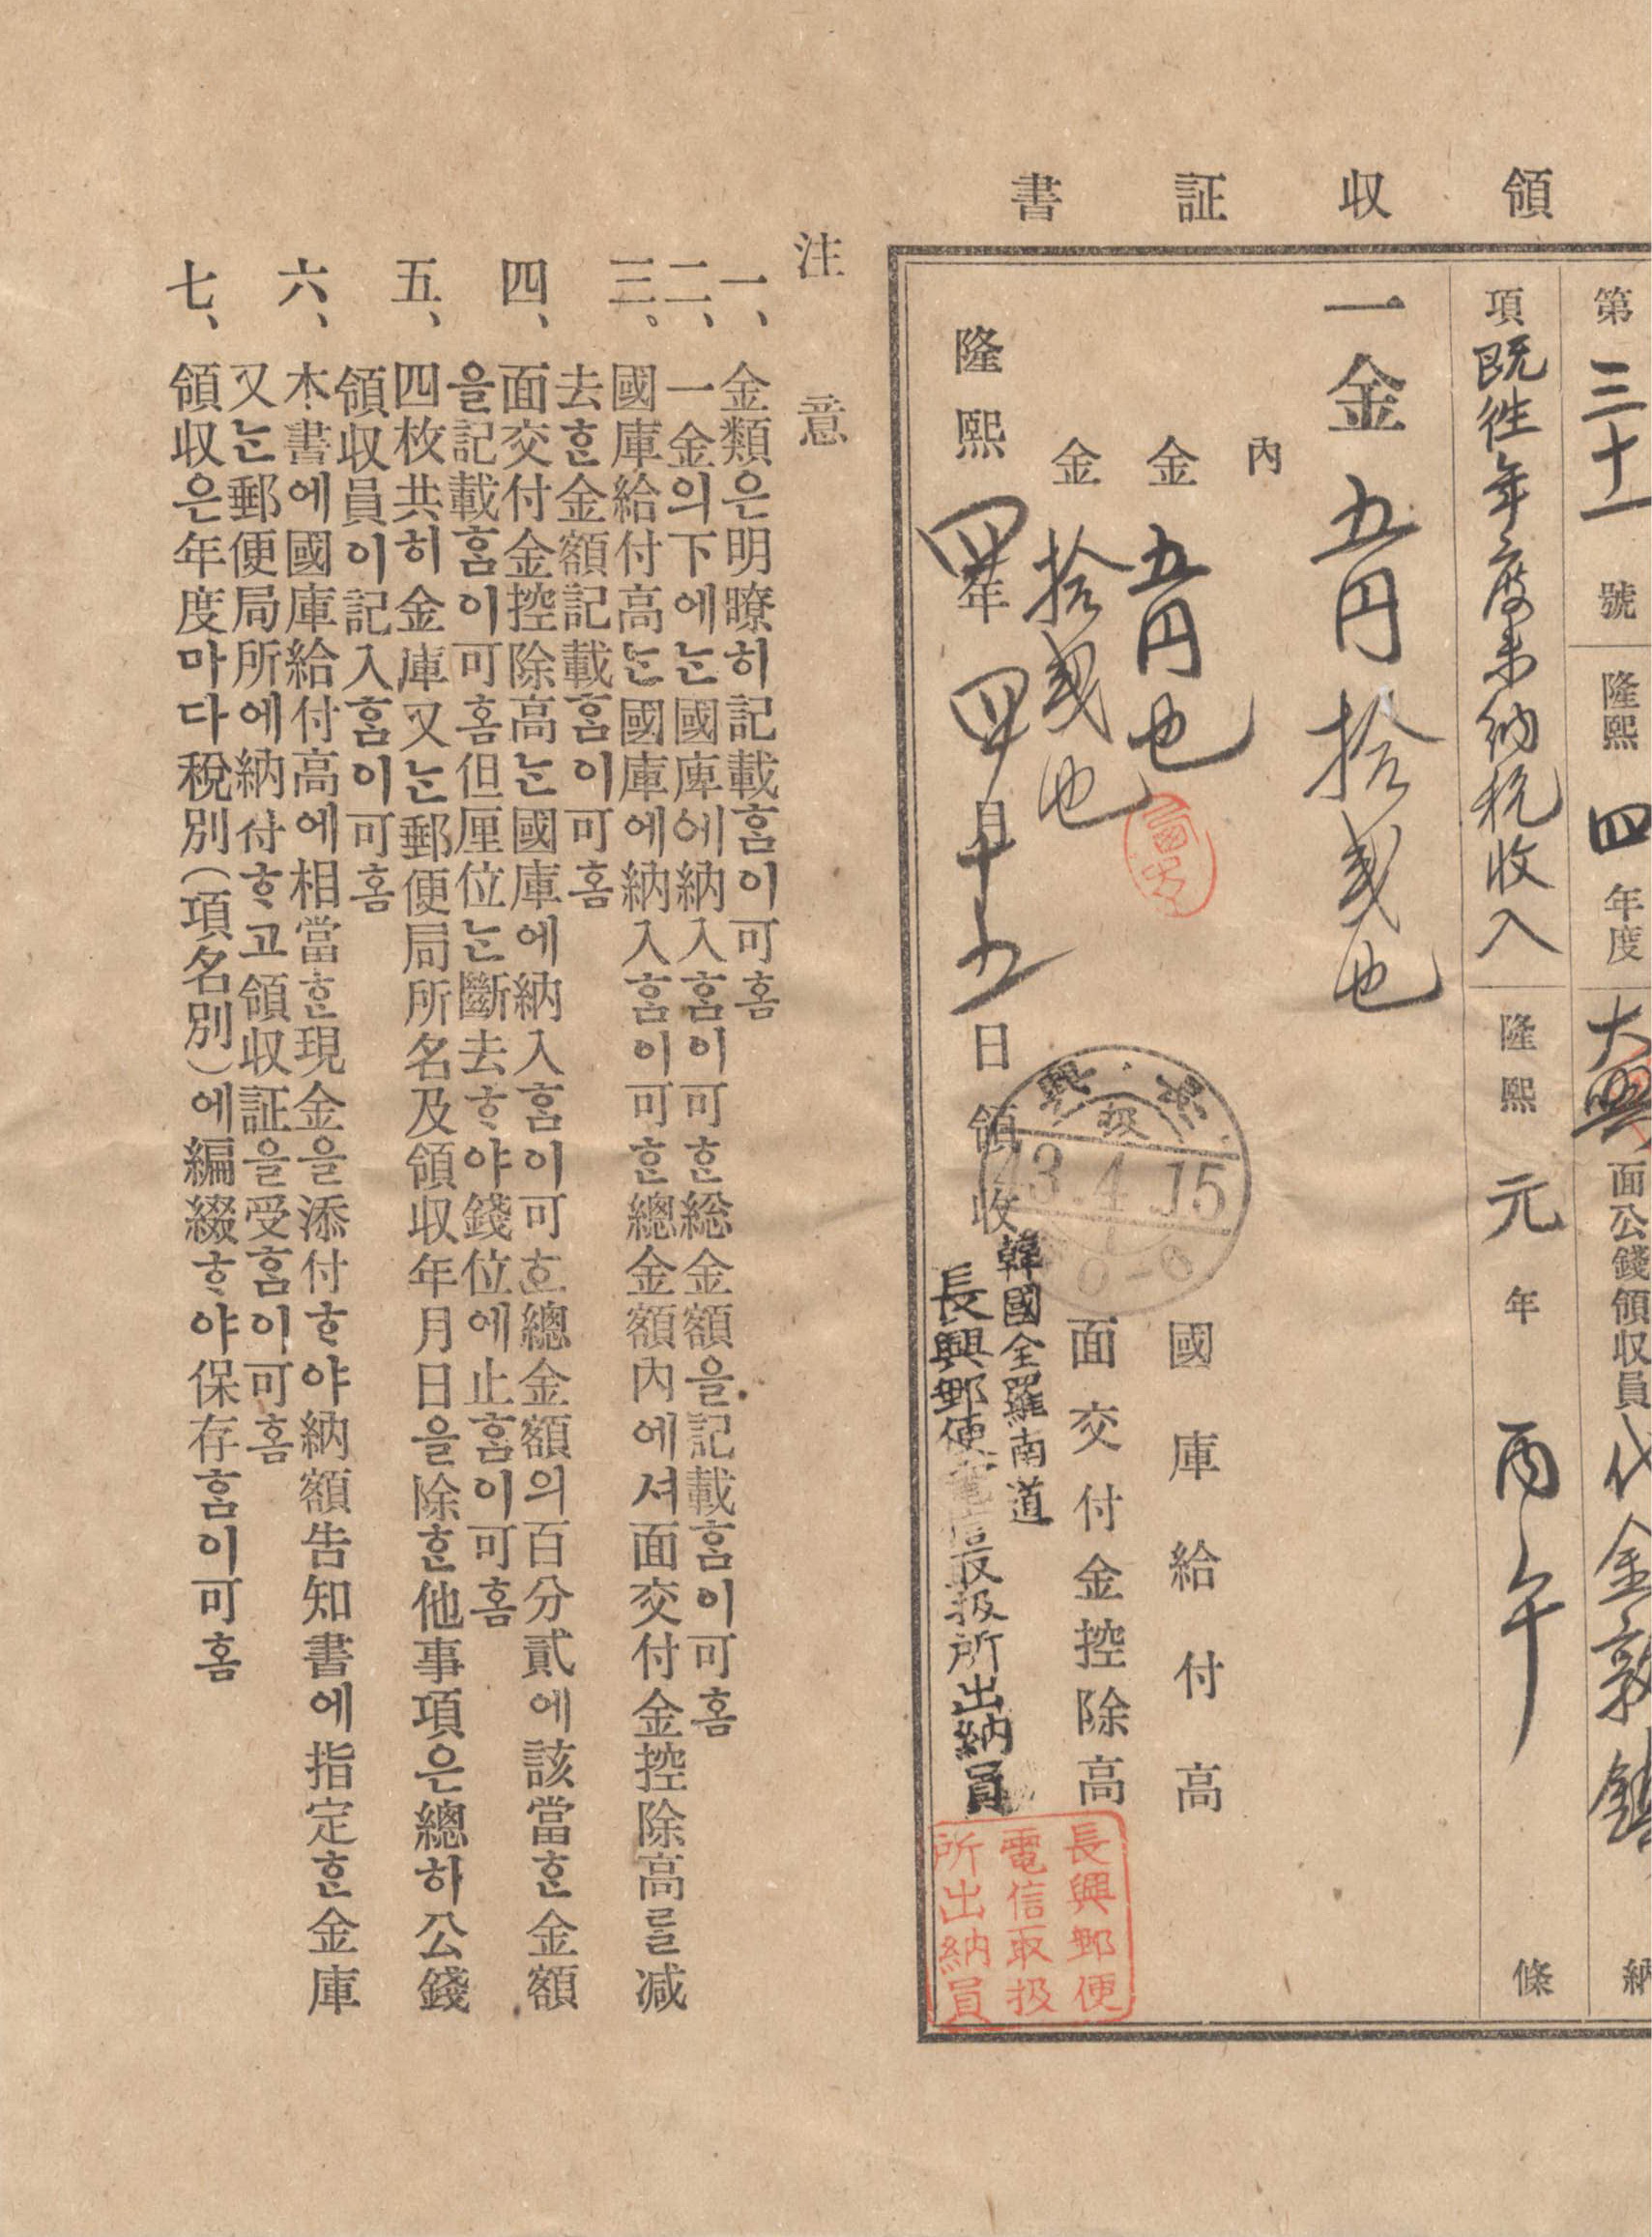 領収証書
第三十一號 隆熙四年度 大興面公錢領収員代金敦鎮 納
項 既往年度未納税收入 隆熙元年 丙午 條
一金五円拾貳也
內
金五円也 國庫給付高
金拾貳也 面交付金控除高
隆熙四年四月十五日領收
韓國全羅南道
長興郵便電信取扱所出納員
長興郵便
電信取扱
所出納員
43.4.15
注意
一、金類은明瞭히記載홈이可홈
二、一金의下에는國庫에納入홈이可한総金額을記載홈이可홈
三。國庫給付高는國庫에納入홈이可한總金額內에셔面交付金控除高를减
去한金額記載홈이可홈
四、面交付金控除高는國庫에納入홈이可한總金額의百分貳에該當한金額
을記載홈이可홈但厘位는斷去하야錢位에止홈이可홈
五、四枚共히金庫又는郵便局所名及領収年月日을除한他事項은總하公錢
領収員이記入홈이可홈
六、本書에國庫給付高에相當한現金을添付하야納額告知書에指定한金庫
又는郵便局所에納付하고領収証을受홈이可홈
七、領収은年度마다稅別(項名別)에編綴하야保存홈이可홈